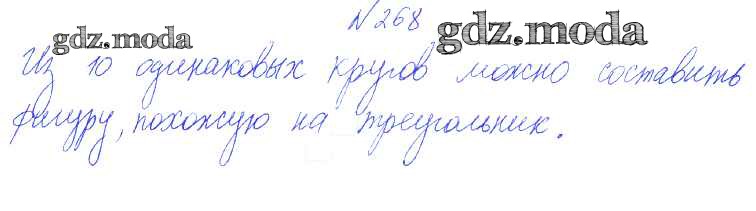 № 268
gdz.moda
gdz.moda
Из 10 одинаковых кругов можно составить
фигуру, похожую на треугольник.